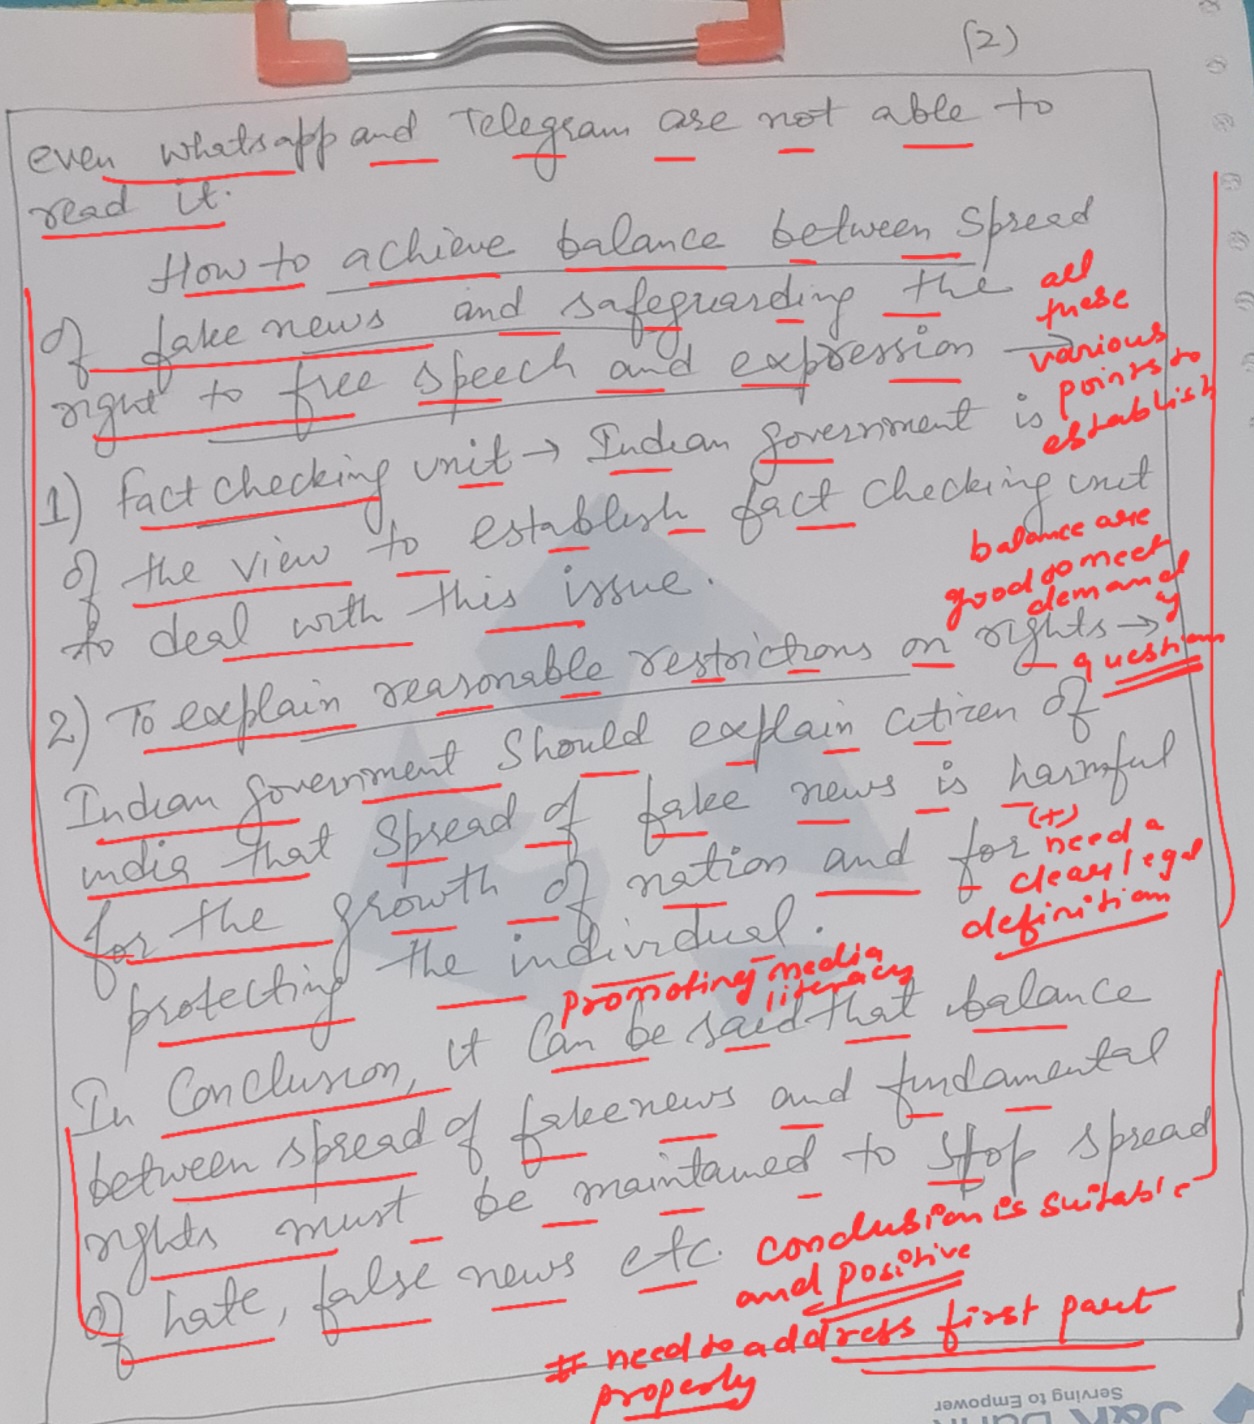 (2)
even whatsapp and Telegram are not able to
read it.
How to achieve balance between spread
of fake news and safeguarding the
right to free speech and expression →
all
these
various
points to
establish
balance are
good to meet
demand
of
question
1) fact checking unit → Indian government is
of the view to establish fact checking unit
to deal with this issue.
2) To explain reasonable restrictions on rights →
Indian government should explain citizen of
india that spread of fake news is harmful
for the growth of nation and for
protecting the individual.
(+)
need a
clear legal
definition
promoting media
literacy
In Conclusion, it can be said that balance
between spread of fake news and fundamental
rights must be maintained to stop spread
of hate, false news etc.
conclusion is suitable
and positive
# need to address first part
properly
Serving to Empower
J&K Bank